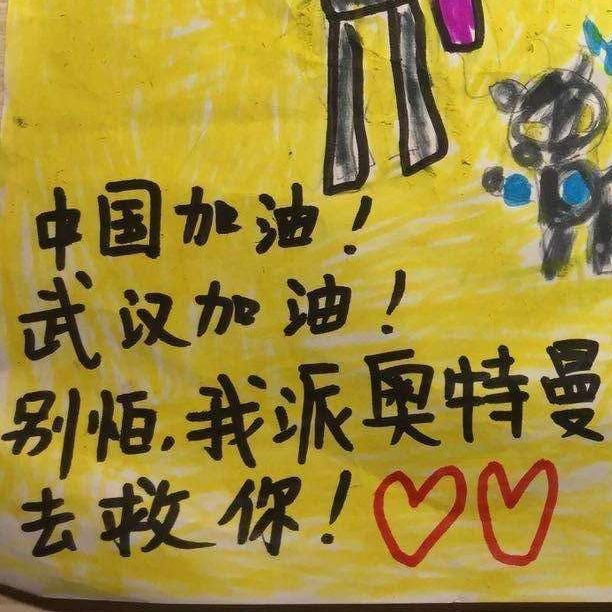 中国加油！
武汉加油！
别怕，我派奥特曼
去救你！